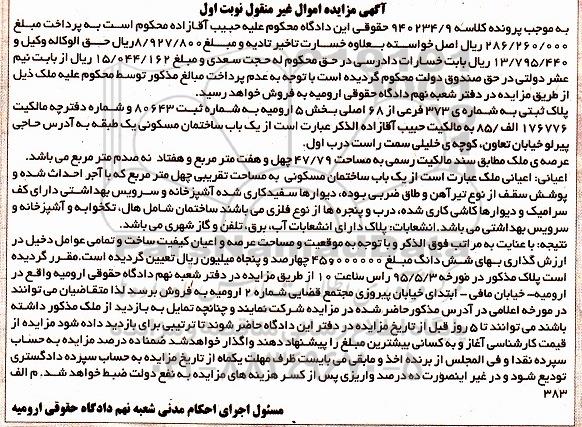 آگهی مزایده اموال غیر منقول نوبت اول
به موجب پرونده کلاسه ۹۴۰۲۳۴/۹ حقوقی این دادگاه محکوم علیه حبیب آقازاده محکوم است به پرداخت مبلغ
۲۸۶/۲۶۰/۰۰۰ ریال اصل خواسته به علاوه خسارت تاخیر تادیه و مبلغ ۸/۹۲۷/۸۰۰ ریال حق الوکاله وکیل و
۱۳/۷۹۵/۴۴۰ ریال بابت خسارات دادرسی در حق محکوم له حجت سعدی و مبلغ ۱۵/۰۴۴/۱۶۲ ریال از بابت نیم
عشر دولتی در حق صندوق دولت محکوم گردیده است با توجه به عدم پرداخت مبالغ مذکور توسط محکوم علیه ملک ذیل
از طریق مزایده در دفتر شعبه نهم دادگاه حقوقی ارومیه به فروش خواهد رسید.
پلاک ثبتی به شماره ی ۳۷۳ فرعی از ۶۸ اصلی بخش ۵ ارومیه به شماره ثبت ۸۰۶۴۳ و شماره دفترچه مالکیت
۱۷۶۷۷۶ الف /۸۵ به مالکیت حبیب آقازاده الذکر عبارت است از یک باب ساختمان مسکونی یک طبقه به آدرس حاجی
پیرلو خیابان تعاون، کوچه ی خلیلی سمت راست درب اول.
عرصه ی ملک مطابق سند مالکیت رسمی به مساحت ۴۷/۷۹ چهل و هفت متر مربع و هفتاد نه صدم متر مربع می باشد.
اعیانی: اعیانی ملک عبارت است از یک باب ساختمان مسکونی به مساحت تقریبی چهل متر مربع که با آجر احداث شده و
پوشش سقف از نوع تیرآهن و طاق ضربی بوده، دیوارها سفیدکاری شده آشپزخانه و سرویس بهداشتی دارای کف
سرامیک و دیوارها کاشی کاری شده، درب و پنجره ها از نوع فلزی می باشند ساختمان شامل هال، تکخوابه و آشپزخانه و
سرویس بهداشتی می باشد. انشعابات: پلاک دارای انشعابات آب، برق، تلفن و گاز شهری می باشد.
نتیجه: با عنایت به مراتب فوق الذکر و با توجه به موقعیت و مساحت عرصه و اعیان کیفیت ساخت و تمامی عوامل دخیل در
ارزش گذاری بهای شش دانگ مبلغ ۴۵۰۰۰۰۰۰۰ چهارصد و پنجاه میلیون ریال تعیین گردیده است. مقرر گردیده
است پلاک مذکور در مورخه ۹۵/۵/۳ راس ساعت ۱۰ از طریق مزایده در دفتر شعبه نهم دادگاه حقوقی ارومیه واقع در
ارومیه- خیابان مافی - ابتدای خیابان پیروزی مجتمع قضایی شماره ۲ ارومیه به فروش برسد لذا متقاضیان می توانند
در مورخه اعلامی در آدرس مذکور حاضر شده در مزایده شرکت نمایند و چنانچه تمایل به بازدید از ملک مذکور داشته
باشند می توانند تا ۵ روز قبل از تاریخ مزایده در دفتر این دادگاه حاضر شوند تا ترتیبی برای بازدید داده شود مزایده از
قیمت کارشناسی آغاز و به کسانی بیشترین مبلغ را پیشنهاد دهند واگذار خواهد شد ضمناً ده درصد مزایده به حساب
سپرده نقدا و فی المجلس از برنده اخذ و مابقی می بایست ظرف مهلت یکماه از تاریخ مزایده به حساب سپرده دادگستری
تودیع شود و در غیر اینصورت ده درصد واریزی پس از کسر هزینه های مزایده به نفع دولت ضبط خواهد شد. م الف
۳۸۳
مسئول اجرای احکام مدنی شعبه نهم دادگاه حقوقی ارومیه